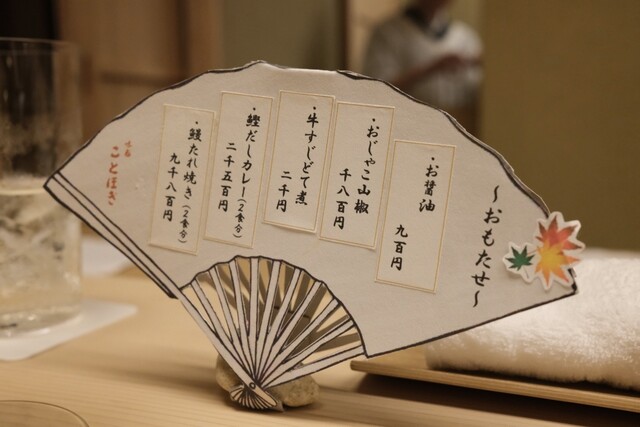 ～おもたせ～
・お醤油
九百円
・おじゃこ山椒
千八百円
・牛すじどて煮
二千円
・鰹だしカレー(2食分)
二千五百円
・鰻たれ焼き(2食分)
九千八百円
ことほぎ